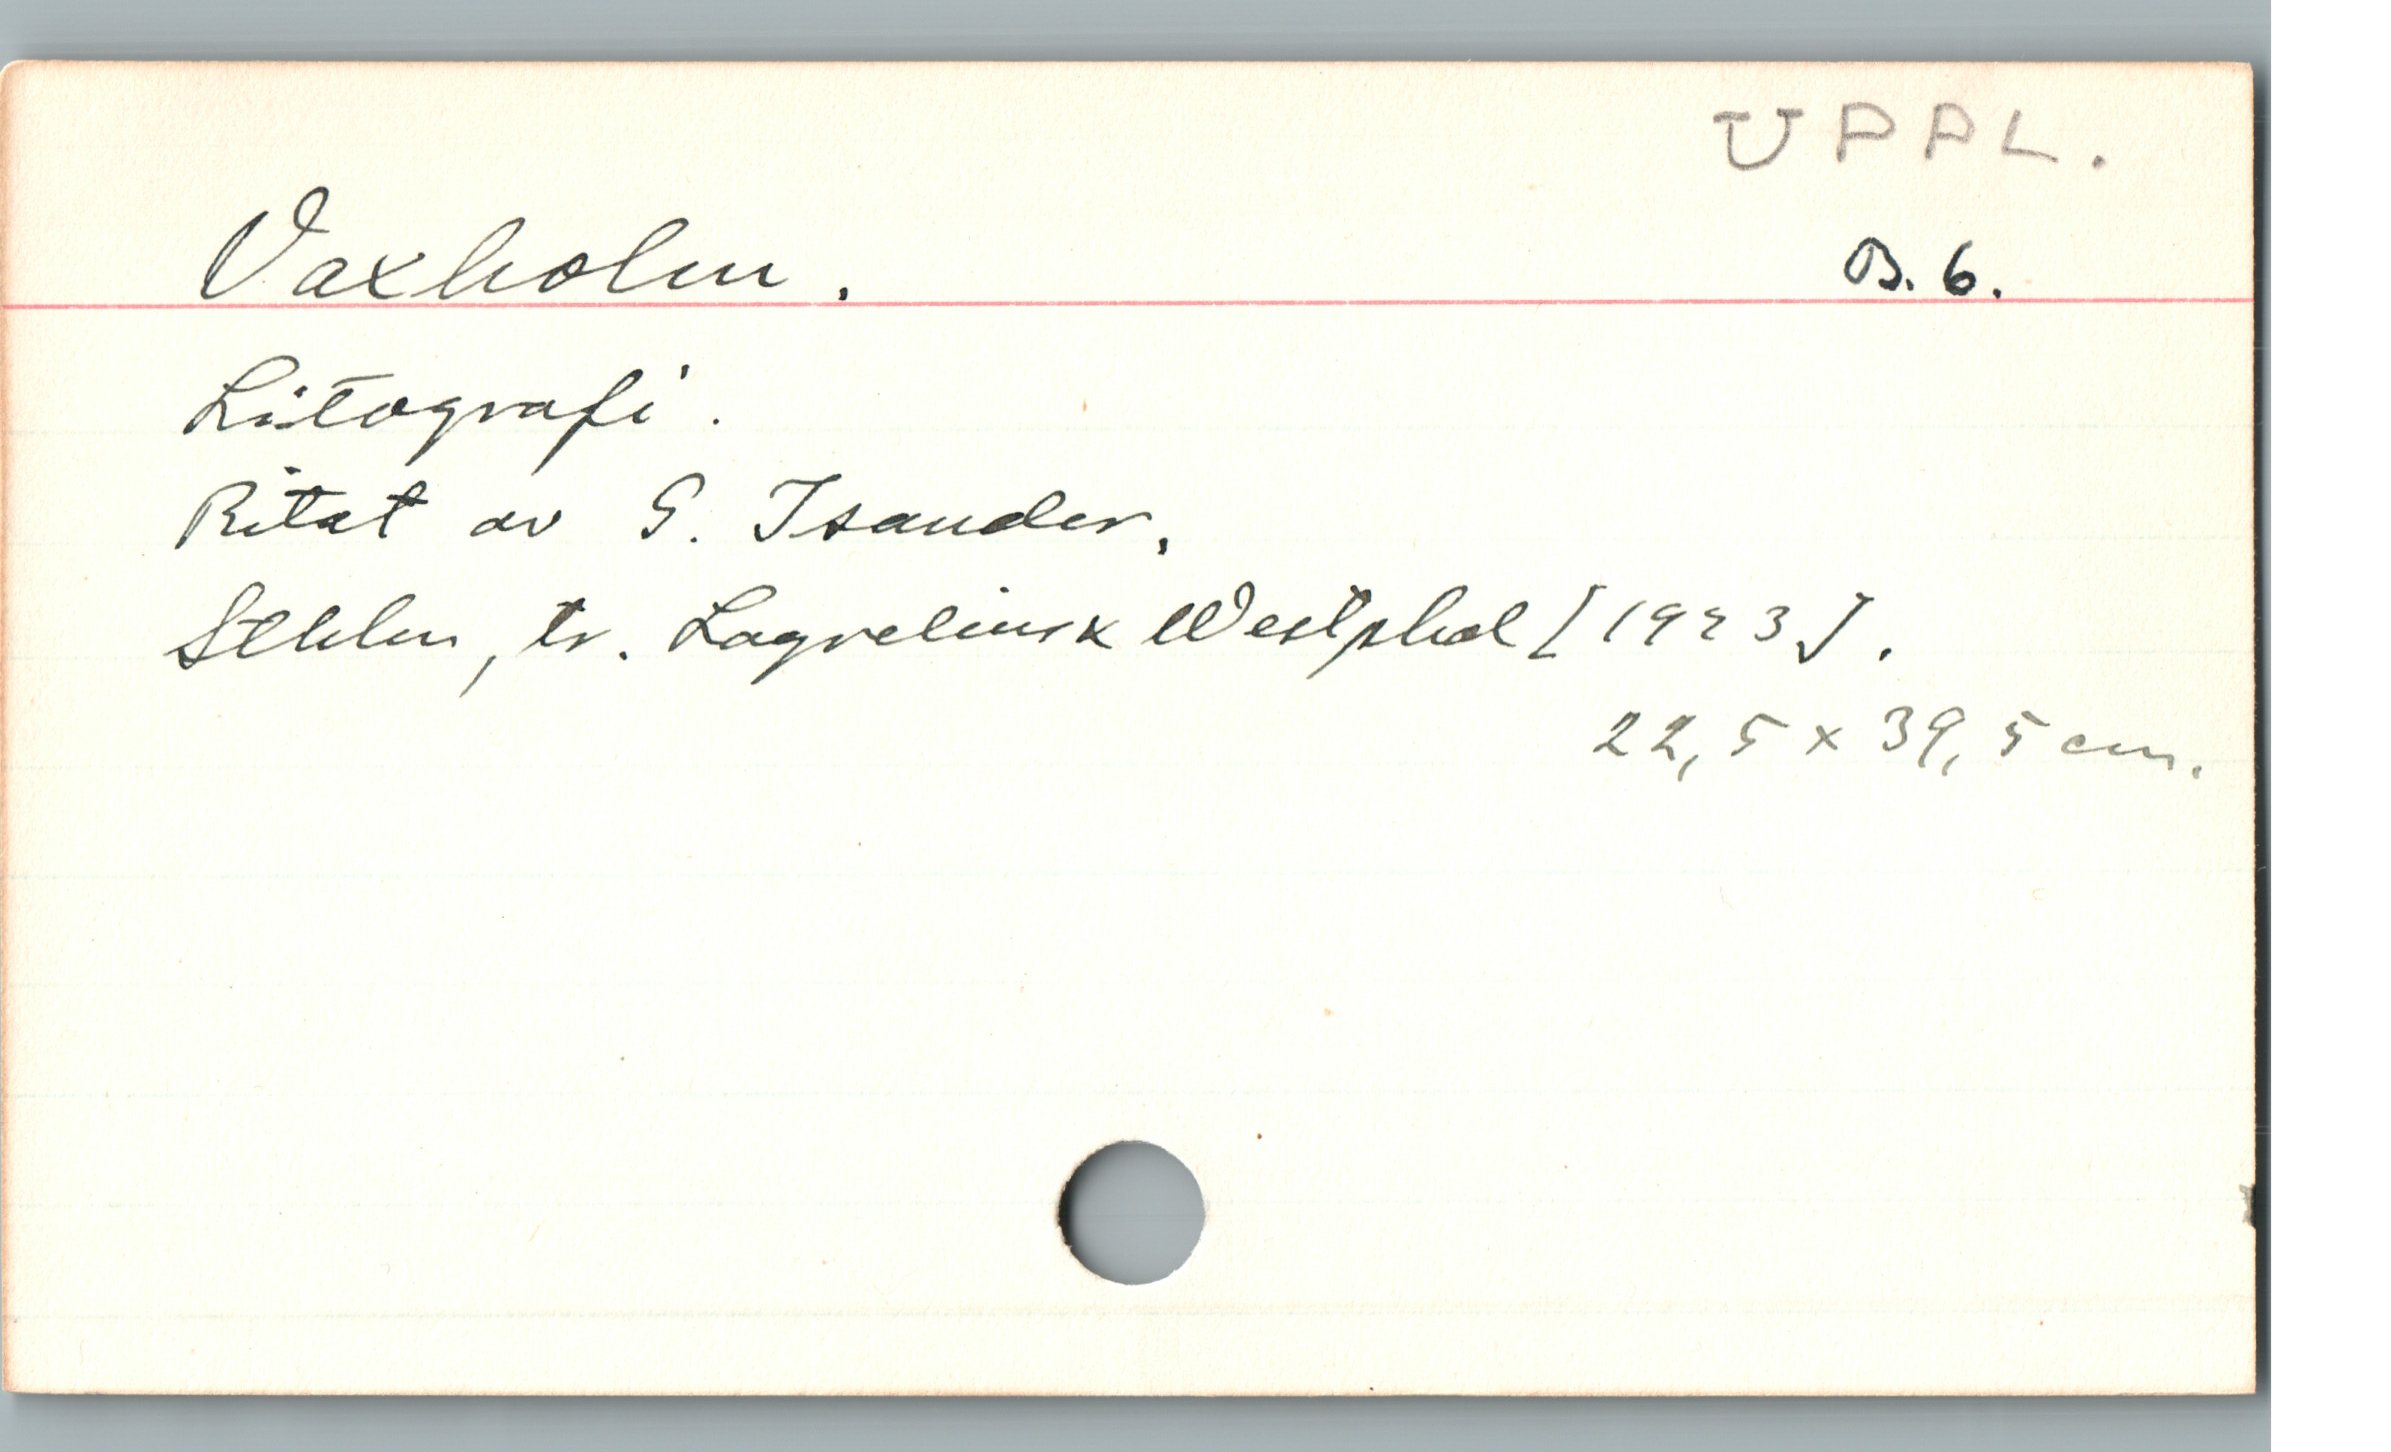 UPPL.
Vaxholm. B. 6.
Litografi.
Ritat av G. Isander.
Sthlm, tr. Lagrelius & Westphal [1923].
22,5 x 39,5 cm.